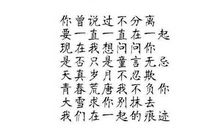 你曾说过不分离
要一直一直在一起
现在我想问问你
是否只是童言无忌
天真岁月不忍欺
青春荒唐我不负你
大雪求你别抹去
我们在一起的痕迹